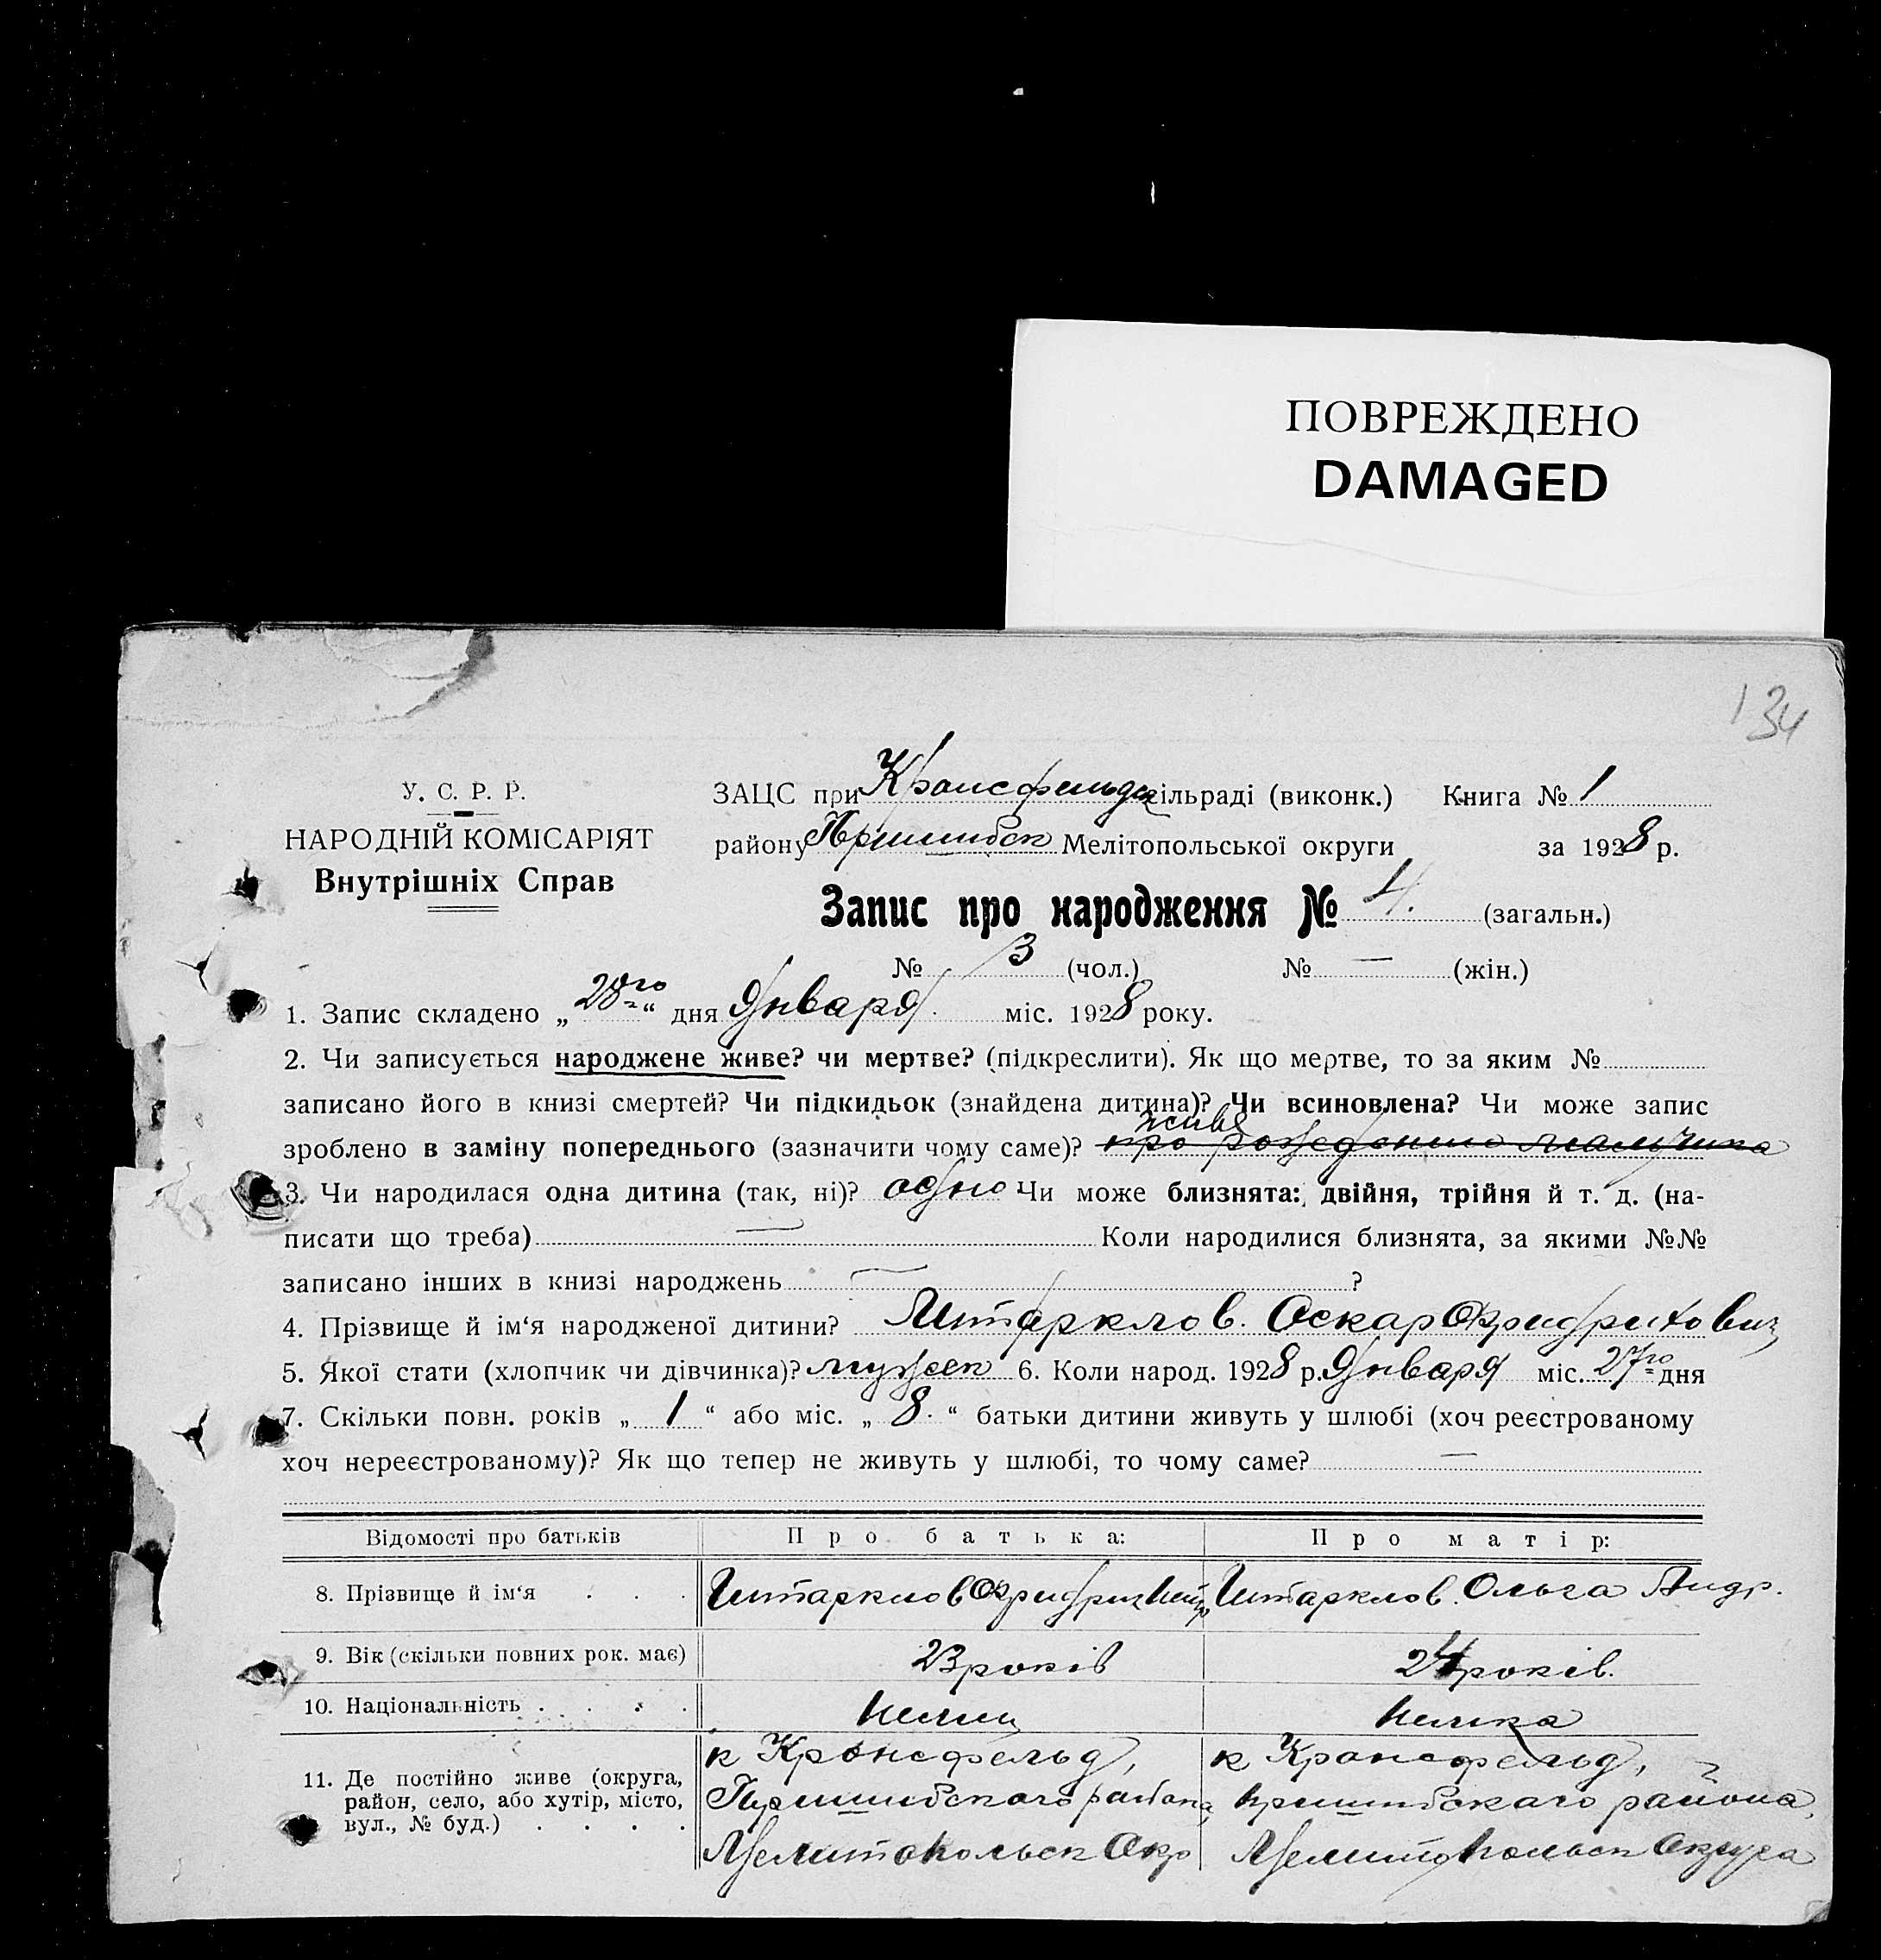 ПОВРЕЖДЕНО
DAMAGED
134
У. С. Р. Р.
НАРОДНІЙ КОМІСАРІЯТ
Внутрішніх Справ
ЗАЦС при Кронсфельда сільраді (виконк.) Книга № 1
району Пришибск Мелітопольської округи за 1928 р.
Запис про народження № 4. (загальн.)
№ 3 (чол.) № — (жін.)
1. Запис складено „28го“ дня Января міс. 1928 року.
2. Чи записується народжене живе? чи мертве? (підкреслити). Як що мертве, то за яким №
записано його в книзі смертей? Чи підкидьок (знайдена дитина)? Чи всиновлена? Чи може запис
живе
зроблено в заміну попереднього (зазначити чому саме)? про рождению мальчика
3. Чи народилася одна дитина (так, ні)? одно Чи може близнята: двійня, трійня й т. д. (на-
писати що треба) — Коли народилися близнята, за якими №№
записано інших в книзі народжень — ?
4. Прізвище й ім‘я народженої дитини? Штарклов. Оскар Фридрихович
5. Якої стати (хлопчик чи дівчинка)? мужск 6. Коли народ. 1928 р. Января міс. 27го дня
7. Скільки повн. років „ 1 “ або міс. „ 8. “ батьки дитини живуть у шлюбі (хоч реєстрованому
хоч нереєстрованому)? Як що тепер не живуть у шлюбі, то чому саме? —
Відомості про батьків Про батька: Про матір:
8. Прізвище й ім‘я . . . Штарклов Фридрих Штарклов. Ольга Андр.
9. Вік (скільки повних рок. має) 23 років 24 років.
10. Національність . . . . Немец Немка
11. Де постійно живе (округа, район, село, або хутір, місто, вул., № буд.) . . . .
к Кронсфельд, к Кронсфельд,
Пришибского района, Пришибскаго района,
Мелитопольск Окр Мелитопольск Округа